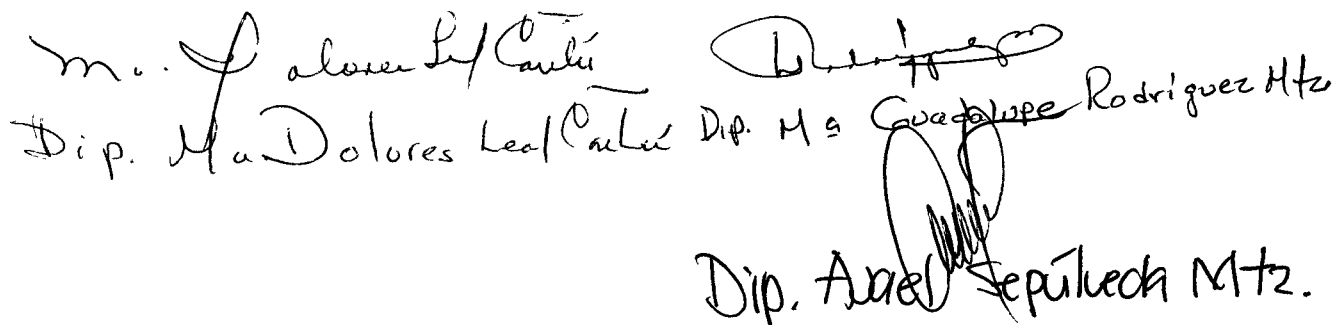 Ma. Dolores Leal Cantú
Dip. Ma Dolores Leal Cantú
Rodríguez
Dip. Mª Guadalupe Rodríguez Mtz
Dip. Sepúlveda Mtz.